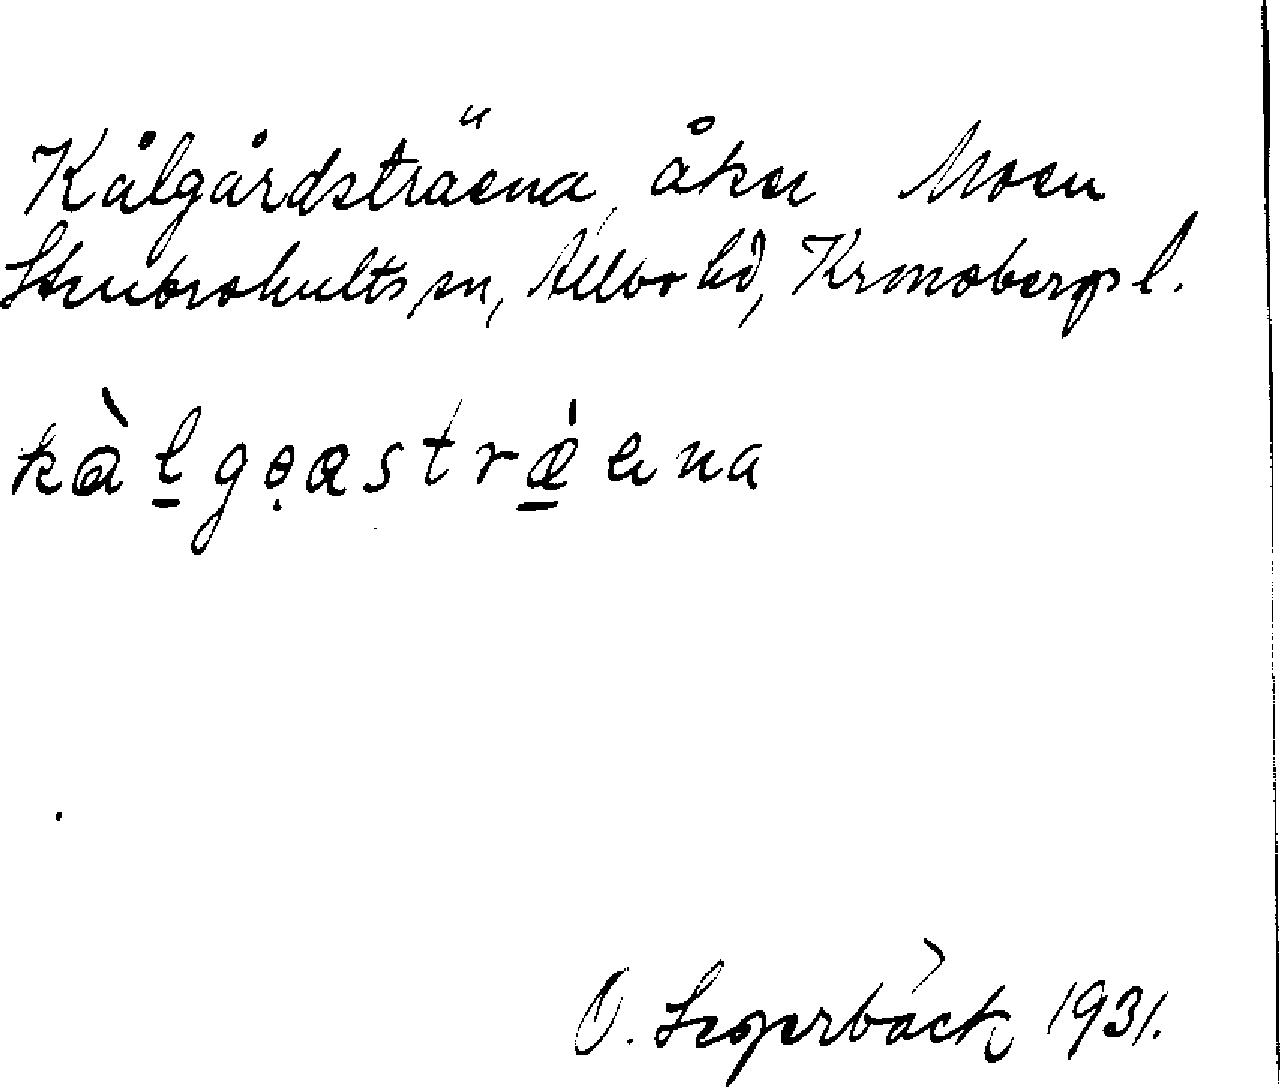 Kålgårdsträena, åker Moen
Stenbrohults sn, Allbo hd, Kronobergs l.
kàl̲gọasträ̲́ena
O. Segerbäck 1931.